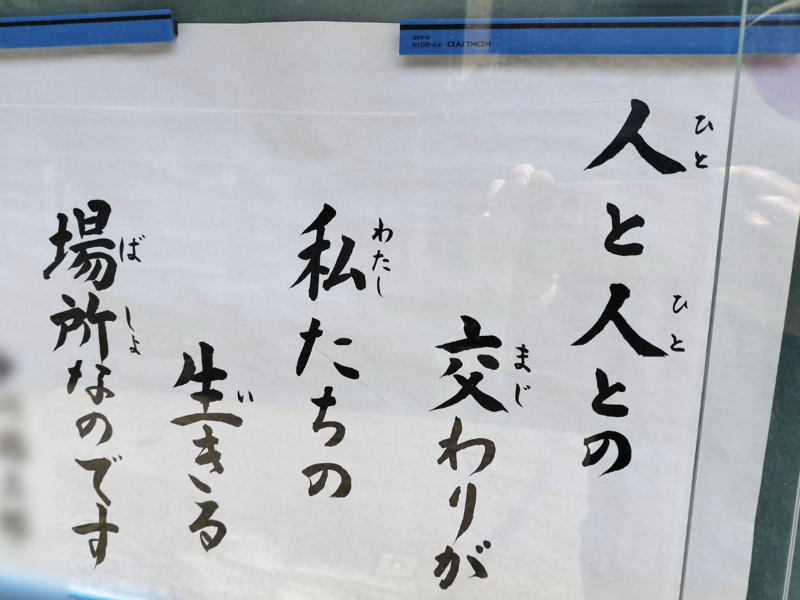 人と人との
交わりが
私たちの
生きる
場所なのです
ひと
ひと
まじ
わたし
い
ばしょ
KOKUYO